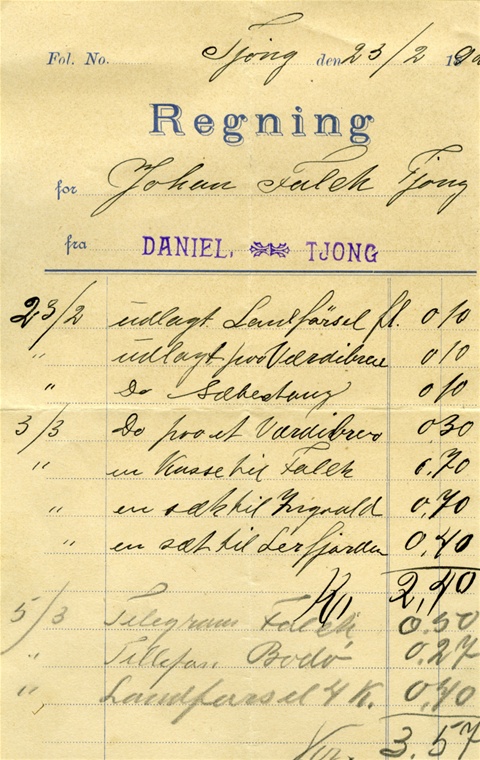 Fol. No. Tjong den 23/2 19
Regning
for Johan Falck Tjong
fra DANIEL. TJONG
23/2 udlagt Landførsel fl. 0 10
" udlagt poo Værdibrev 0 10
" Do 0 10
3/3 Do poo et Værdibrev 0,30
" en Kasse til Falck 0,70
" en sæk til 0,70
" en sæt til Lerfjorden 0,40
Kr, 2,40
5/3 Telegram Falck 0.50
" Tillefon Bodø 0.27
" Landførsel 4 K. 0,40
Kr. 3.57